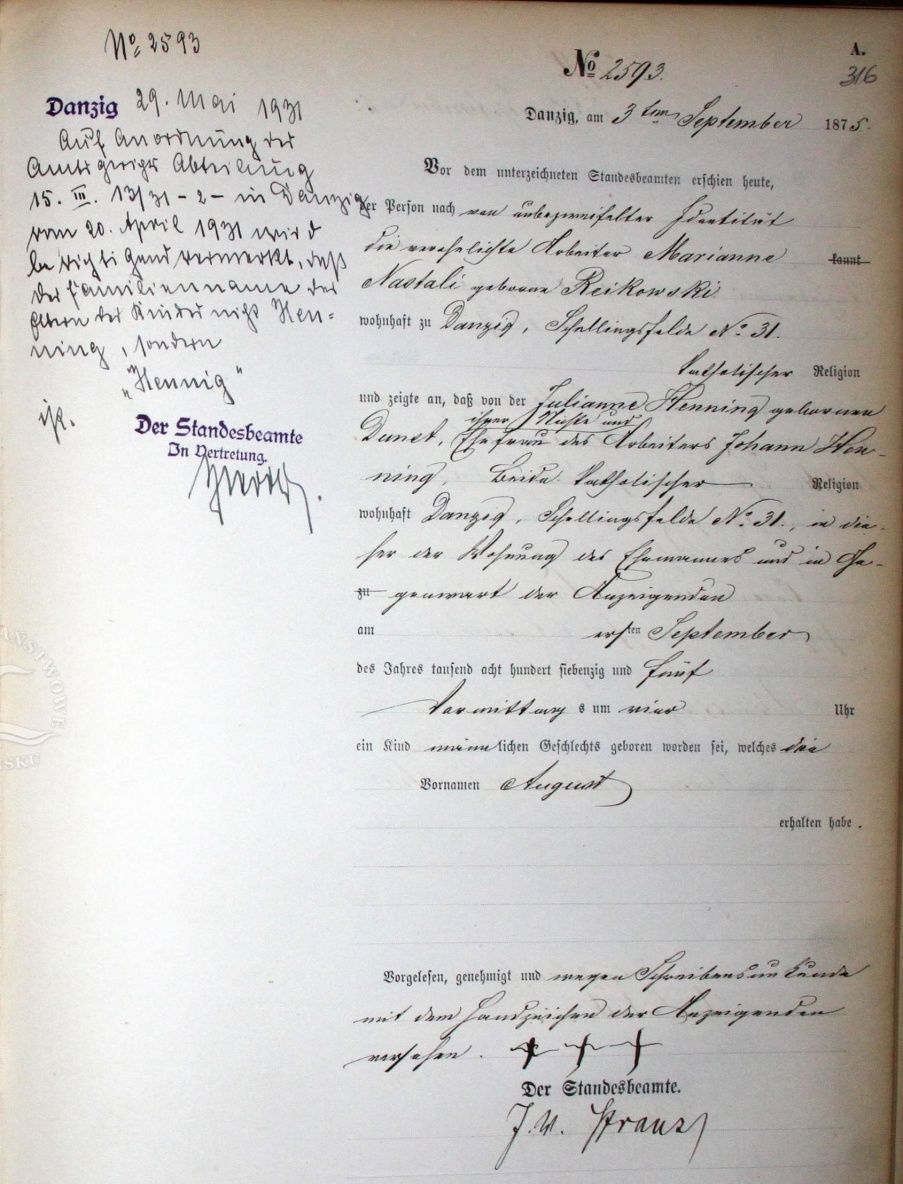 No 2593
A.
316
No 2593.
Danzig, am 3ten September 1875.
Vor dem unterzeichneten Standesbeamten erschien heute,
der Person nach von unbezweifelter Identität
kannt
die verehelichte Arbeiter Marianne
Nastali geborene Reikowski
wohnhaft zu Danzig, Schellingsfelde No. 31.
katholischer Religion
und zeigte an, daß von der Julianne Henning geborenen
ihrer Nichte und
Dunst, Ehefrau des Arbeiters Johann Hen-
ning, beide katholischer Religion
wohnhaft Danzig, Schellingsfelde No. 31, in die-
ser der Wohnung des Ehemannes und in Ge-
zu genwart der Anzeigenden
am ersten September
des Jahres tausend acht hundert siebenzig und fünf
Vormittags um vier Uhr
ein Kind männlichen Geschlechts geboren worden sei, welches die
Vornamen August
erhalten habe.
Vorgelesen, genehmigt und wegen Schreibensunkunde
mit dem Handzeichen der Anzeigenden
versehen. + + +
Der Standesbeamte.
J. V.
Danzig 29. Mai 1931
Auf Anordnung des
Amtsgerichts Abteilung
15. III. 13/31 - 2 - in Danzig
vom 20. April 1931 wird
berichtigend vermerkt, daß
der Familienname der
Eltern des Kindes nicht Hen-
ning, sondern
„Hennig“
ist.
Der Standesbeamte
In Vertretung.